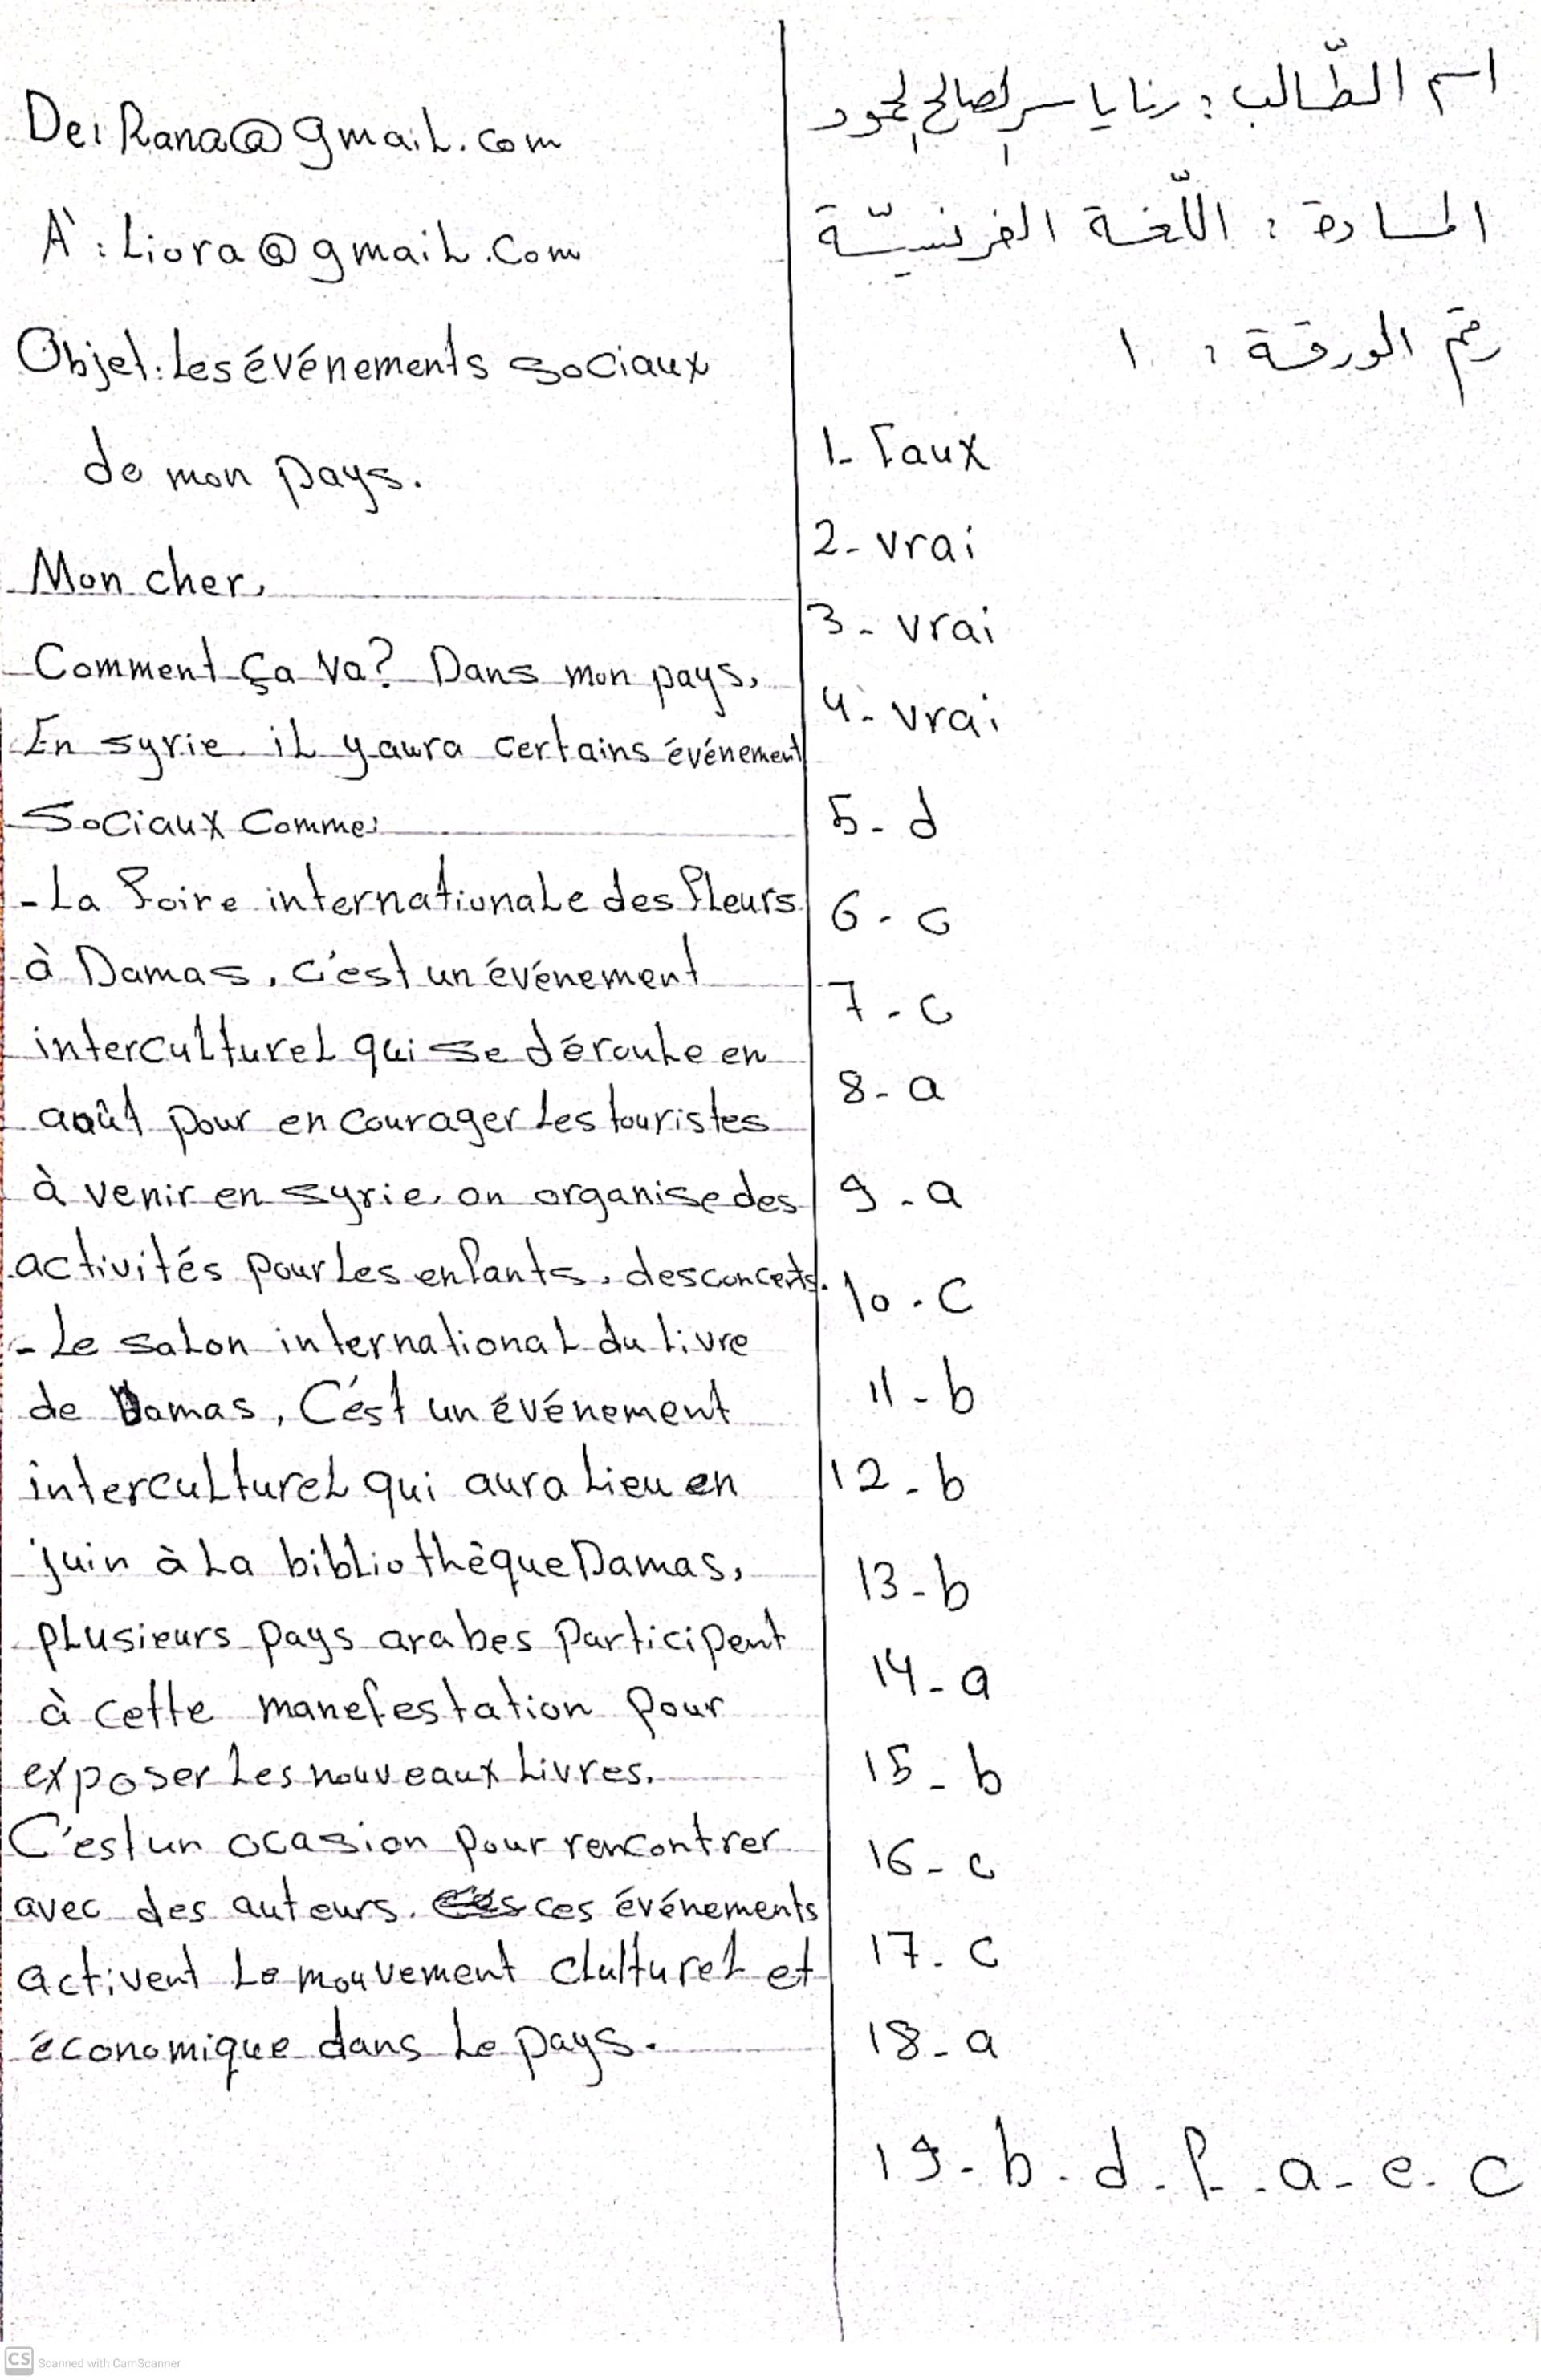 اسم الطّالب : رنا ياسر الصالح الحمود
المادة : اللّغة الفرنسيّة
رقم الورقة : ١
1- Faux
2- vrai
3- vrai
4- vrai
5- d
6- c
7- c
8- a
9- a
10- c
11- b
12- b
13- b
14- a
15- b
16- c
17- c
18- a
19- b - d - f - a - e - c
De: Rana@gmail.com
À : Liora@gmail.com
Objet: Les événements sociaux
de mon pays.
Mon cher,
Comment ça va? Dans mon pays,
En syrie il y aura certains événement
sociaux comme:
- La foire internationale des fleurs
à Damas, c'est un événement
interculturel qui se déroule en
août pour encourager les touristes
à venir en syrie, on organise des
activités pour les enfants, des concerts.
- Le salon international du livre
de Damas, C'est un événement
interculturel qui aura lieu en
juin à la bibliothèque Damas,
plusieurs pays arabes participent
à cette manefestation pour
exposer les nouveaux livres.
C'est un ocasion pour rencontrer
avec des auteurs. ces événements
activent le mouvement clulturel et
économique dans le pays.
CS Scanned with CamScanner